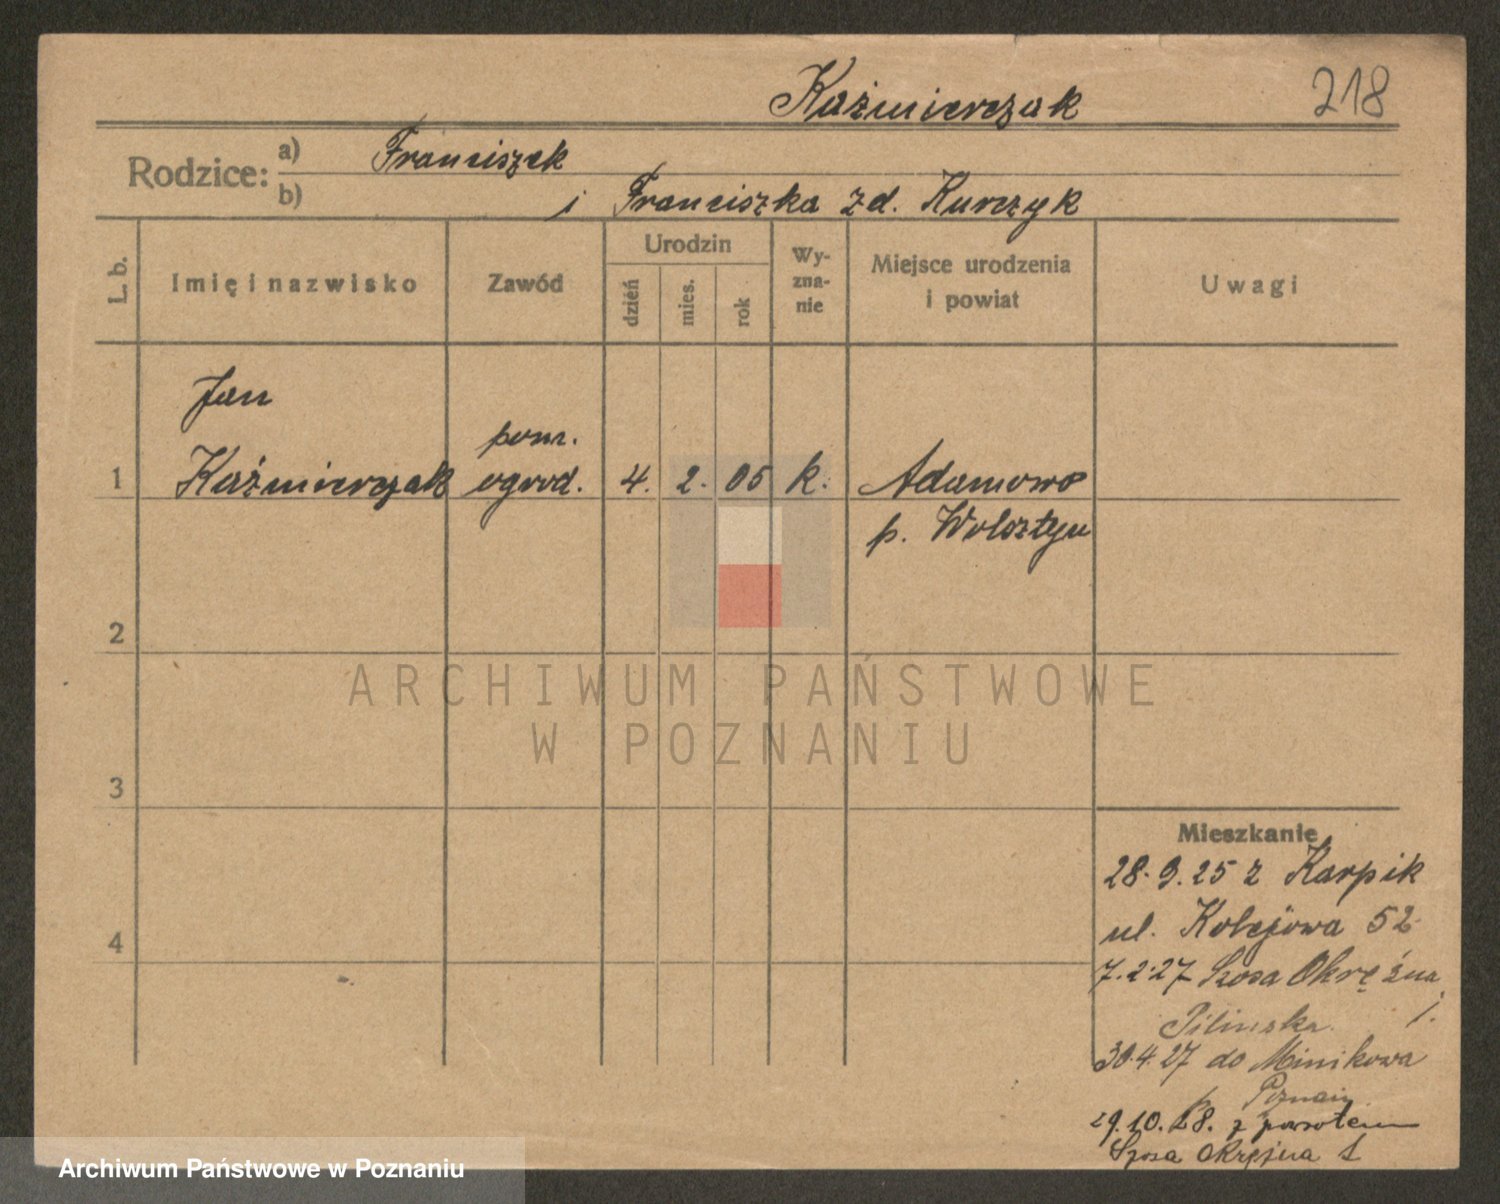 Kaźmierczak 218
Rodzice: a) Franciszek
b) i Franciszka zd. Kurczyk
L. b. Imię i nazwisko Zawód Urodzin dzień mies. rok Wy-zna-nie Miejsce urodzenia i powiat Uwagi
Jan
pom.
1 Kaźmierczak ogrod. 4. 2. 05 k. Adamowo
p. Wolsztyn
2
ARCHIWUM PAŃSTWOWE
W POZNANIU
3
Mieszkanie
28.9.25 z Karpik
ul. Kolejowa 52
4
7.2.27 Szosa Okrężna 1.
Pilinska
30.4.27 do Minikowa
p. Poznań
29.10.28. z powrotem
Szosa Okrężna 1
Archiwum Państwowe w Poznaniu